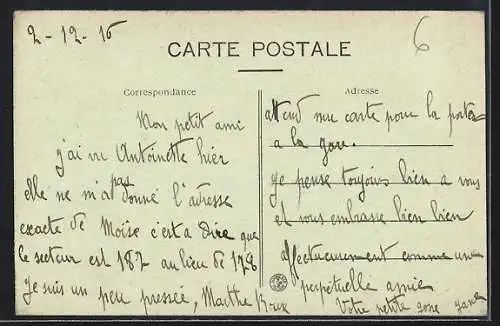 2-12-16
6
CARTE POSTALE
Correspondance
Adresse
Mon petit ami
j'ai vu Antoinette hier
elle ne m'a pas donné l'adresse
exacte de Moïse c'est a dire que
le secteur est 187 au lieu de 178
Je suis un peu pressée, Marthe
attend une carte pour la porter
a la gare.
Je pense toujours bien a vous
et vous embrasse bien bien
affectueusement comme une
perpetuelle amie
Votre petite